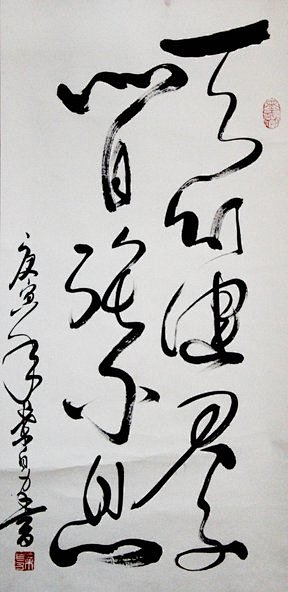 天行健君子
以自强不息
庚寅年書